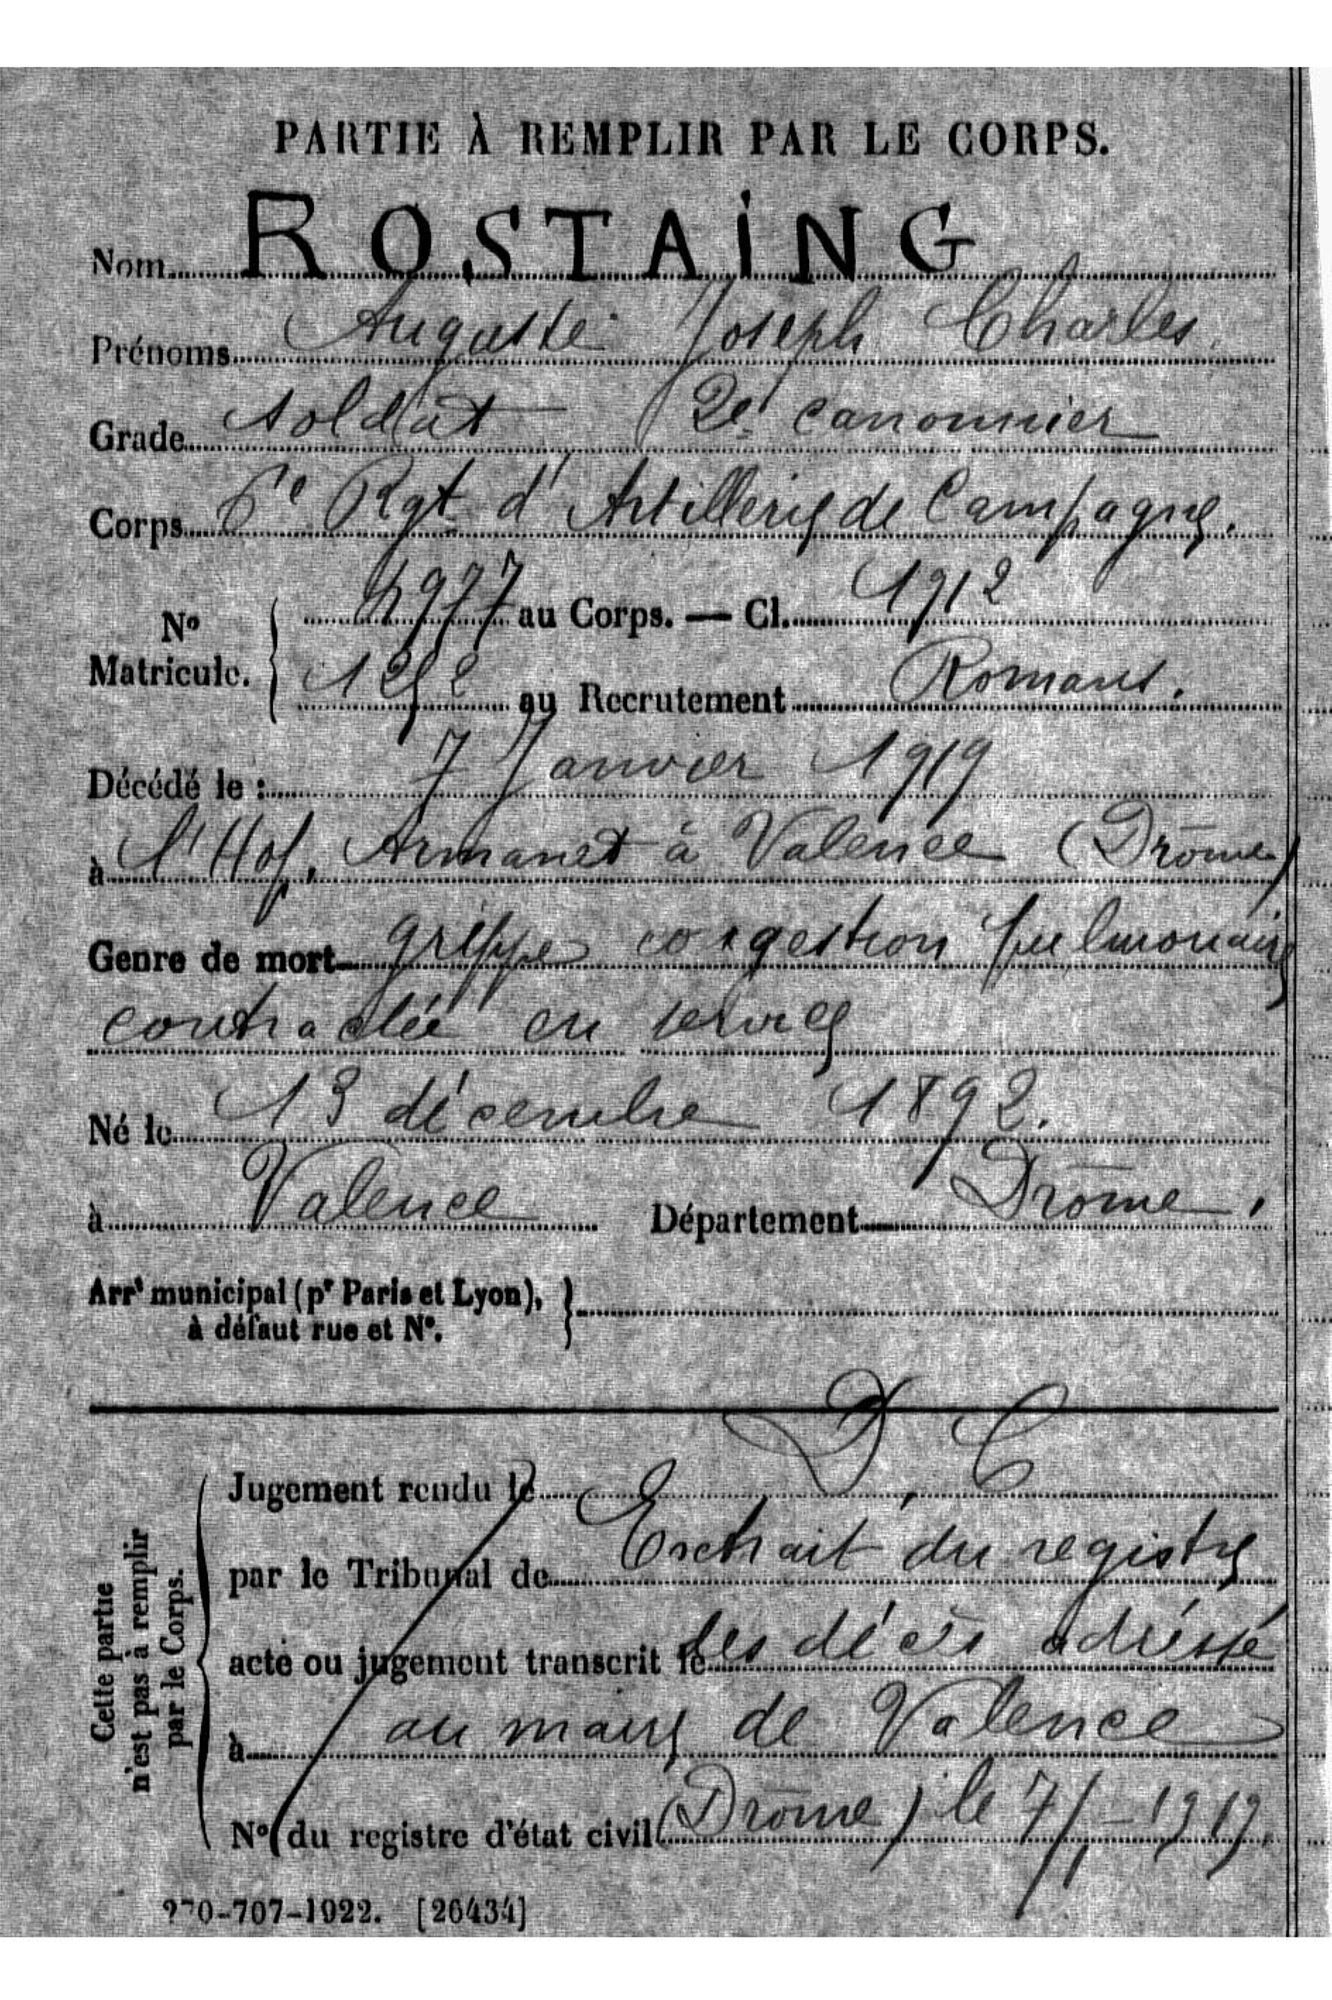 PARTIE À REMPLIR PAR LE CORPS.
Nom ROSTAING
Prénoms Auguste Joseph Charles.
Grade soldat 2e canonnier
Corps 6e Rgt d'Artillerie de Campagne.
No Matricule. { 4977 au Corps. — Cl. 1912
1252 au Recrutement Romans.
Décédé le : 7 Janvier 1919
à l'Hop. Armanet à Valence (Drôme)
Genre de mort grippe congestion pulmonaire
contractée en service
Né le 13 décembre 1892.
à Valence Département Drôme.
Arrt municipal (pr Paris et Lyon), }
à défaut rue et No.
D. C
Cette partie n'est pas à remplir par le Corps.
Jugement rendu le
par le Tribunal de Extrait du registre
acte ou jugement transcrit le des décès adressé
à au maire de Valence
No du registre d'état civil (Drôme) le 7/1-1919.
-707-1922. [26434]